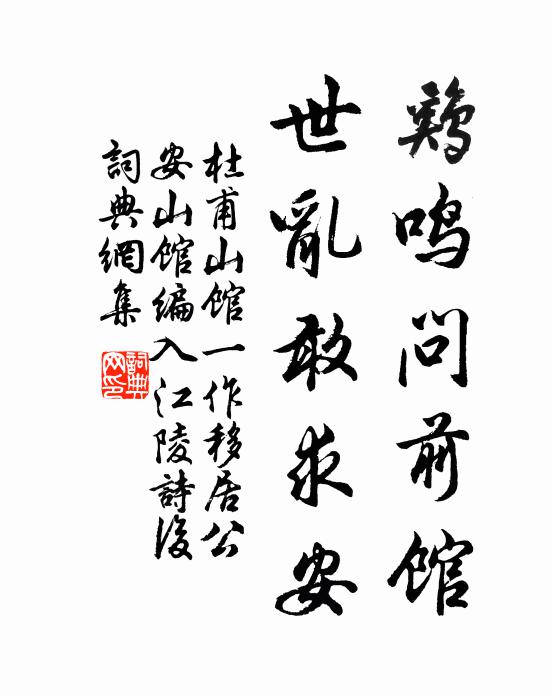 鷄鳴問前館
世亂敢求安
杜甫山館一作移居公
安山館編入江陵詩後
詞典網集
詞典網印